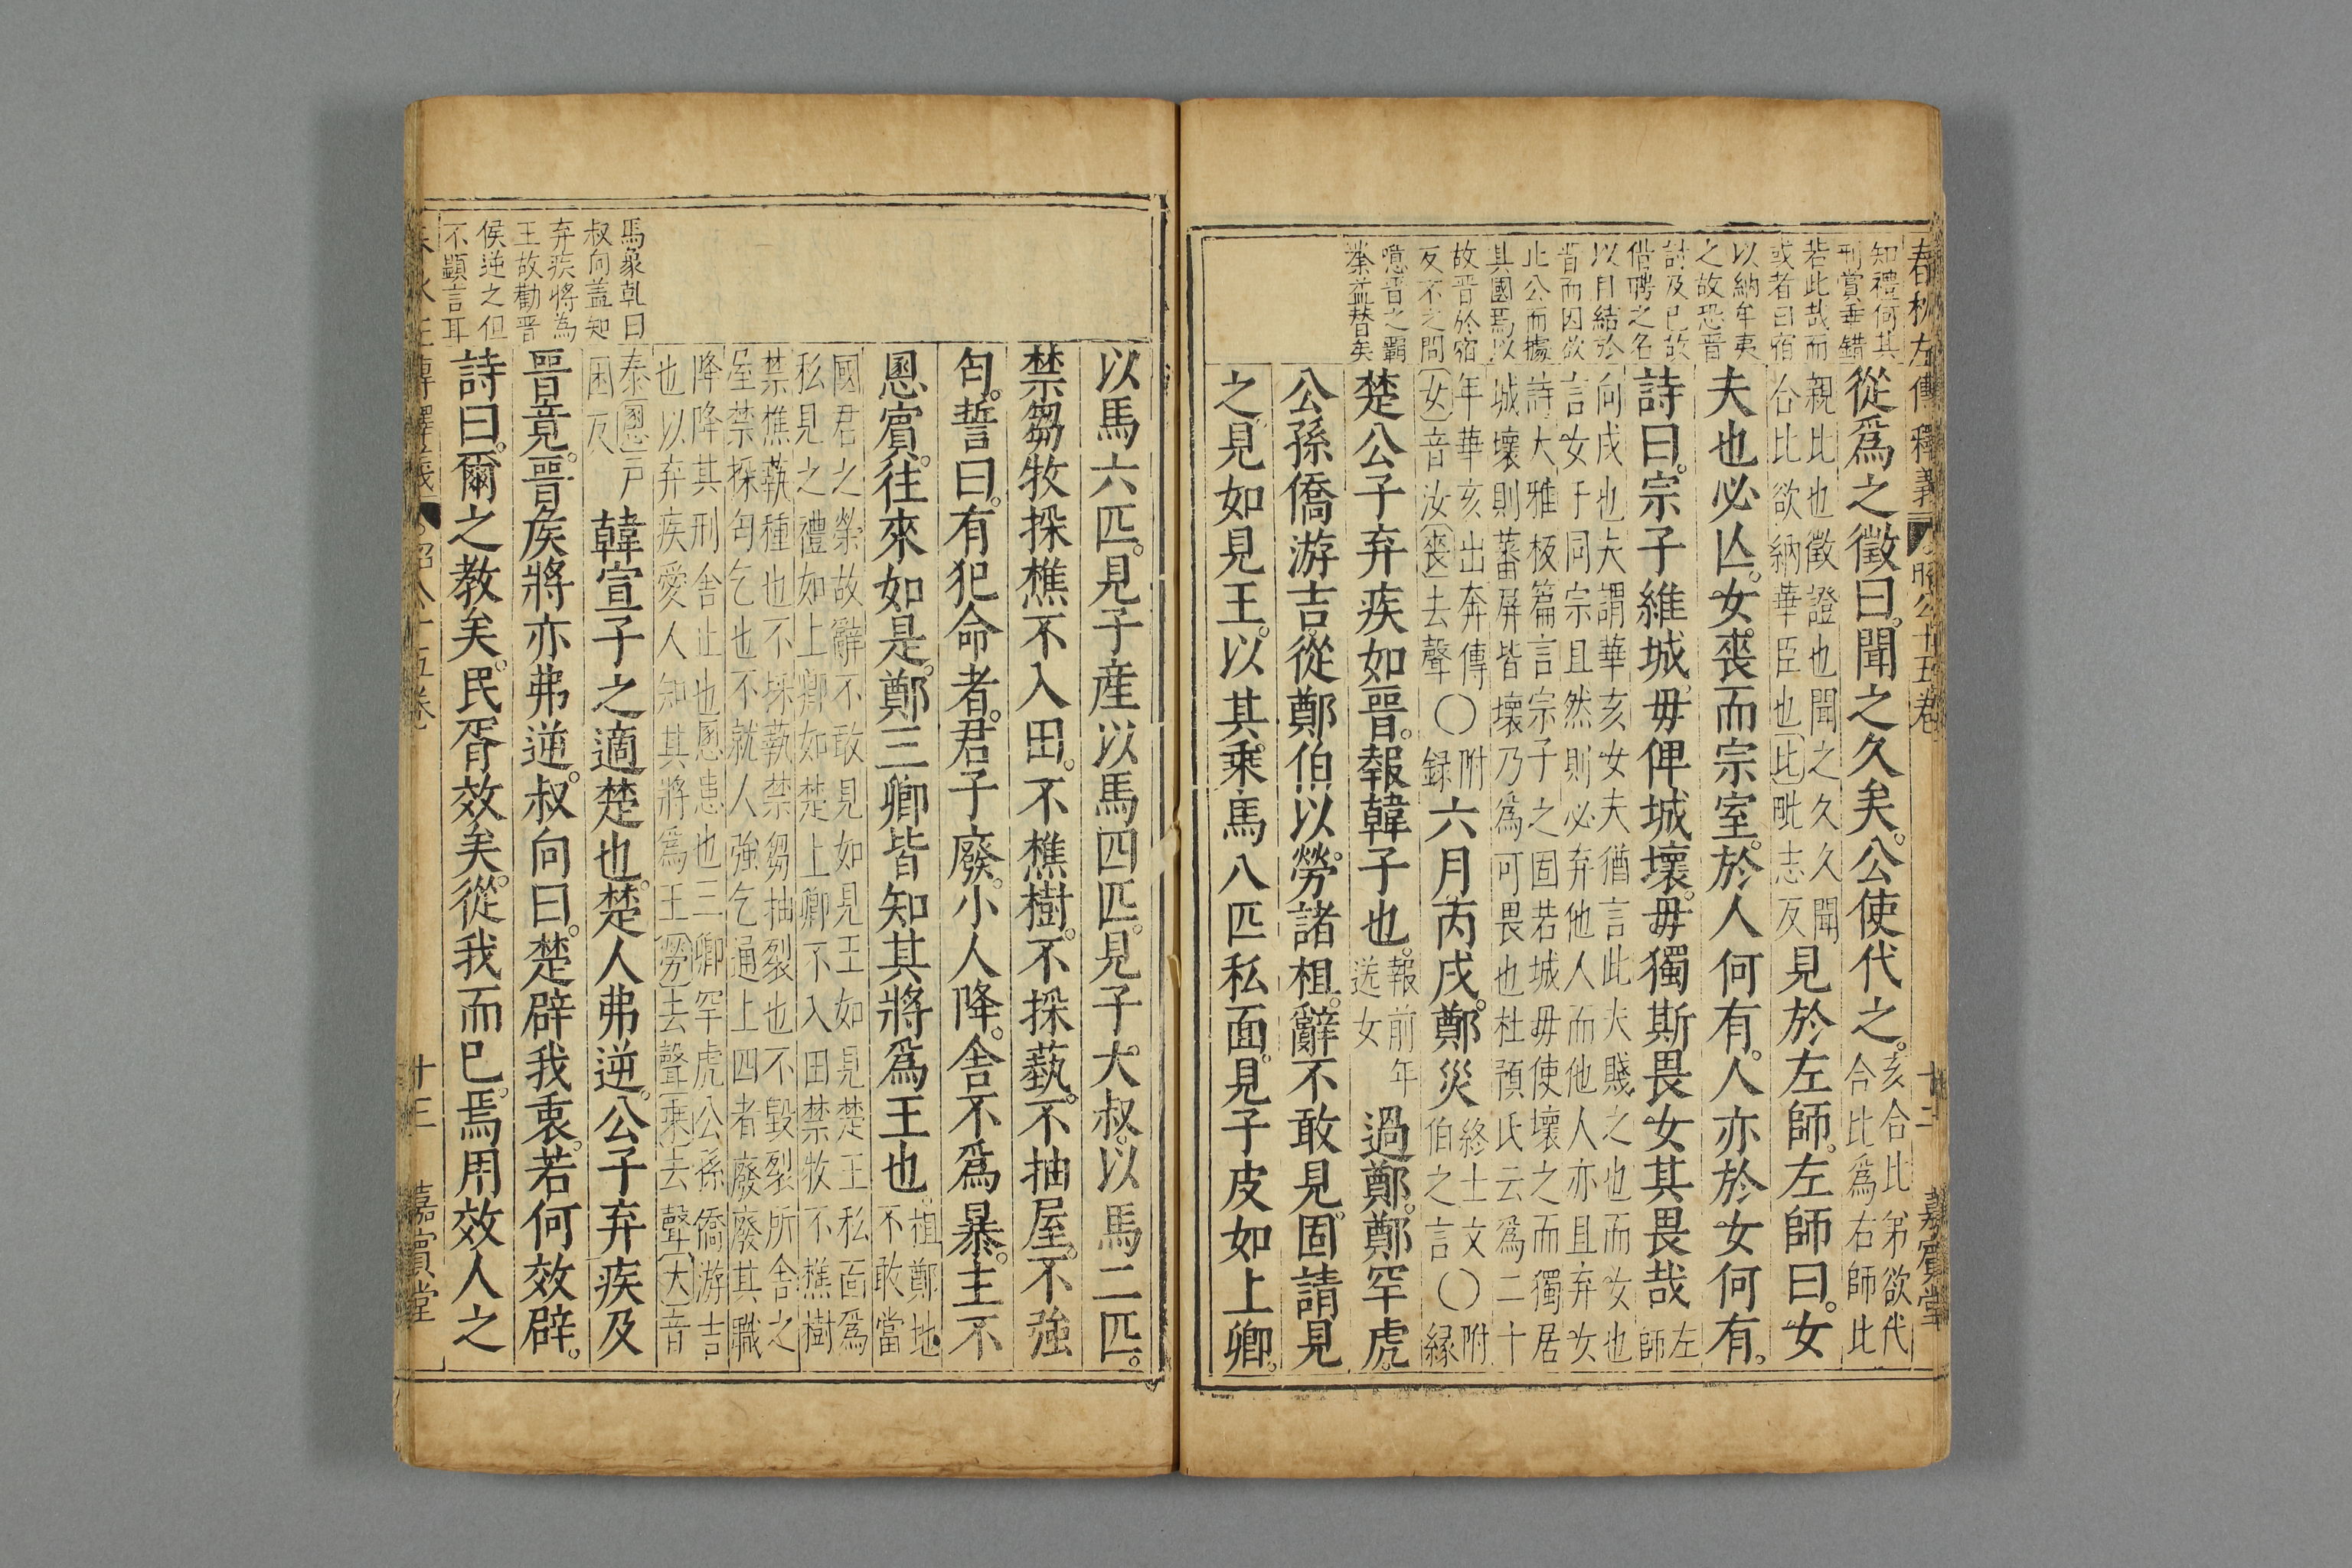 春秋左傳釋義 昭公十五卷 十二 嘉賓堂
知禮何其
刑賞乖錯
若此哉而
或者曰宿
以納牟夷
之故恐晉
討及已故
借聘之名
以自結於
晉而因欲
止公而據
其國焉以
故晉於宿
反不之問
噫晉之霸
業益替矣
從爲之徵曰聞之久矣。公使代之。亥合比弟欲代
合比爲右師比
親比也徵證也聞之久久聞
合比欲納華臣也比毗志反見於左師。左師曰。女
夫也必亾。女喪而宗室。於人何有。人亦於女何有。
詩曰。宗子維城。毋俾城壞。毋獨斯畏女其畏哉左
師
向戌也夫謂華亥女夫猶言此夫賤之也而女也
言女于同宗且然則必弃他人而他人亦且弃女
詩大雅板篇言宗子之固若城毋使壞之而獨居
城壞則藩屏皆壞乃爲可畏也杜預氏云爲二十
年華亥出奔傳〇附
女音汝喪去聲〇録六月丙戌。鄭災終士文〇附
伯之言〇緣
楚公子弃疾如晉。報韓子也。報前年
送女過鄭。鄭罕虎。
公孫僑游吉。從鄭伯以勞。諸柤。辭不敢見。固請見
之。見如見王。以其乘馬八匹私面。見子皮如上卿。
以馬六匹。見子産以馬四匹。見子大叔。以馬二匹。
禁芻牧採樵不入田。不樵樹。不採蓺。不抽屋。不強
匄。誓曰。有犯命者。君子廢。小人降。舍不爲暴。主不
慁賓。往來如是。鄭三卿皆知其將爲王也。柤鄭地
不敢當
國君之勞故辭不敢見如見王如見楚王私面爲
私見之禮如上卿如楚上卿不入田禁牧不樵樹
禁樵蓺種也不採蓺禁芻抽裂也不毀裂所舍之
屋禁採匄乞也不就人強乞通上四者廢廢其職
降降其刑舍止也慁患也三卿罕虎公孫僑游吉
也以弃疾愛人知其將爲王勞去聲乘去聲大音
泰慁戸
困反韓宣子之適楚也。楚人弗逆。公子弃疾及
晉竟。晉侯將亦弗逆。叔向曰。楚辟我衷。若何效辟。
詩曰。爾之教矣。民胥效矣。從我而已。焉用效人之
馬象乾曰
叔向蓋知
弃疾將為
王故勸晉
侯逆之但
不顯言耳
十三 嘉賓堂